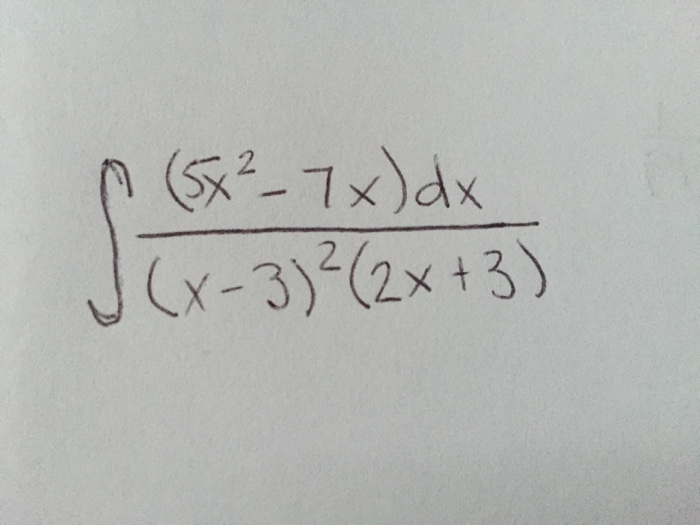 ∫ (5x² - 7x)dx
(x - 3)² (2x + 3)